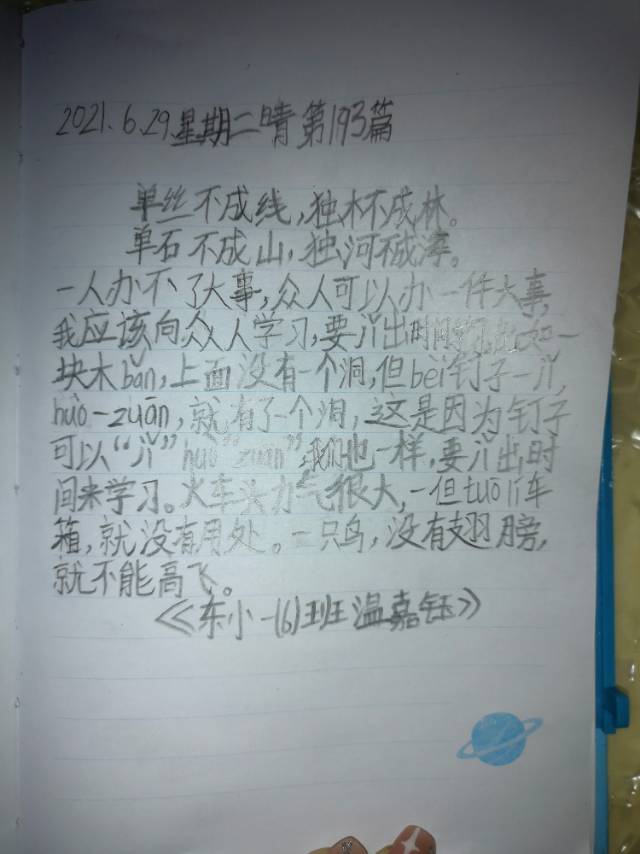 2021.6.29.星期二晴第193篇
单丝不成线,独木不成林。
单石不成山,独河不成海。
一人办不了大事,众人可以办一件大事,
我应该向众人学习,要jǐ出时间 比如一
块木bǎn,上面没有一个洞,但bèi钉子一jǐ,
huò一zuān,就有了一个洞,这是因为钉子
可以“jǐ”huò“zuān”,我们也一样,要jǐ出时
间来学习。火车头力气很大,一但tuō lí车
箱,就没有用处。一只鸟,没有翅膀,
就不能高飞。
《东小一(6)班温嘉钰》